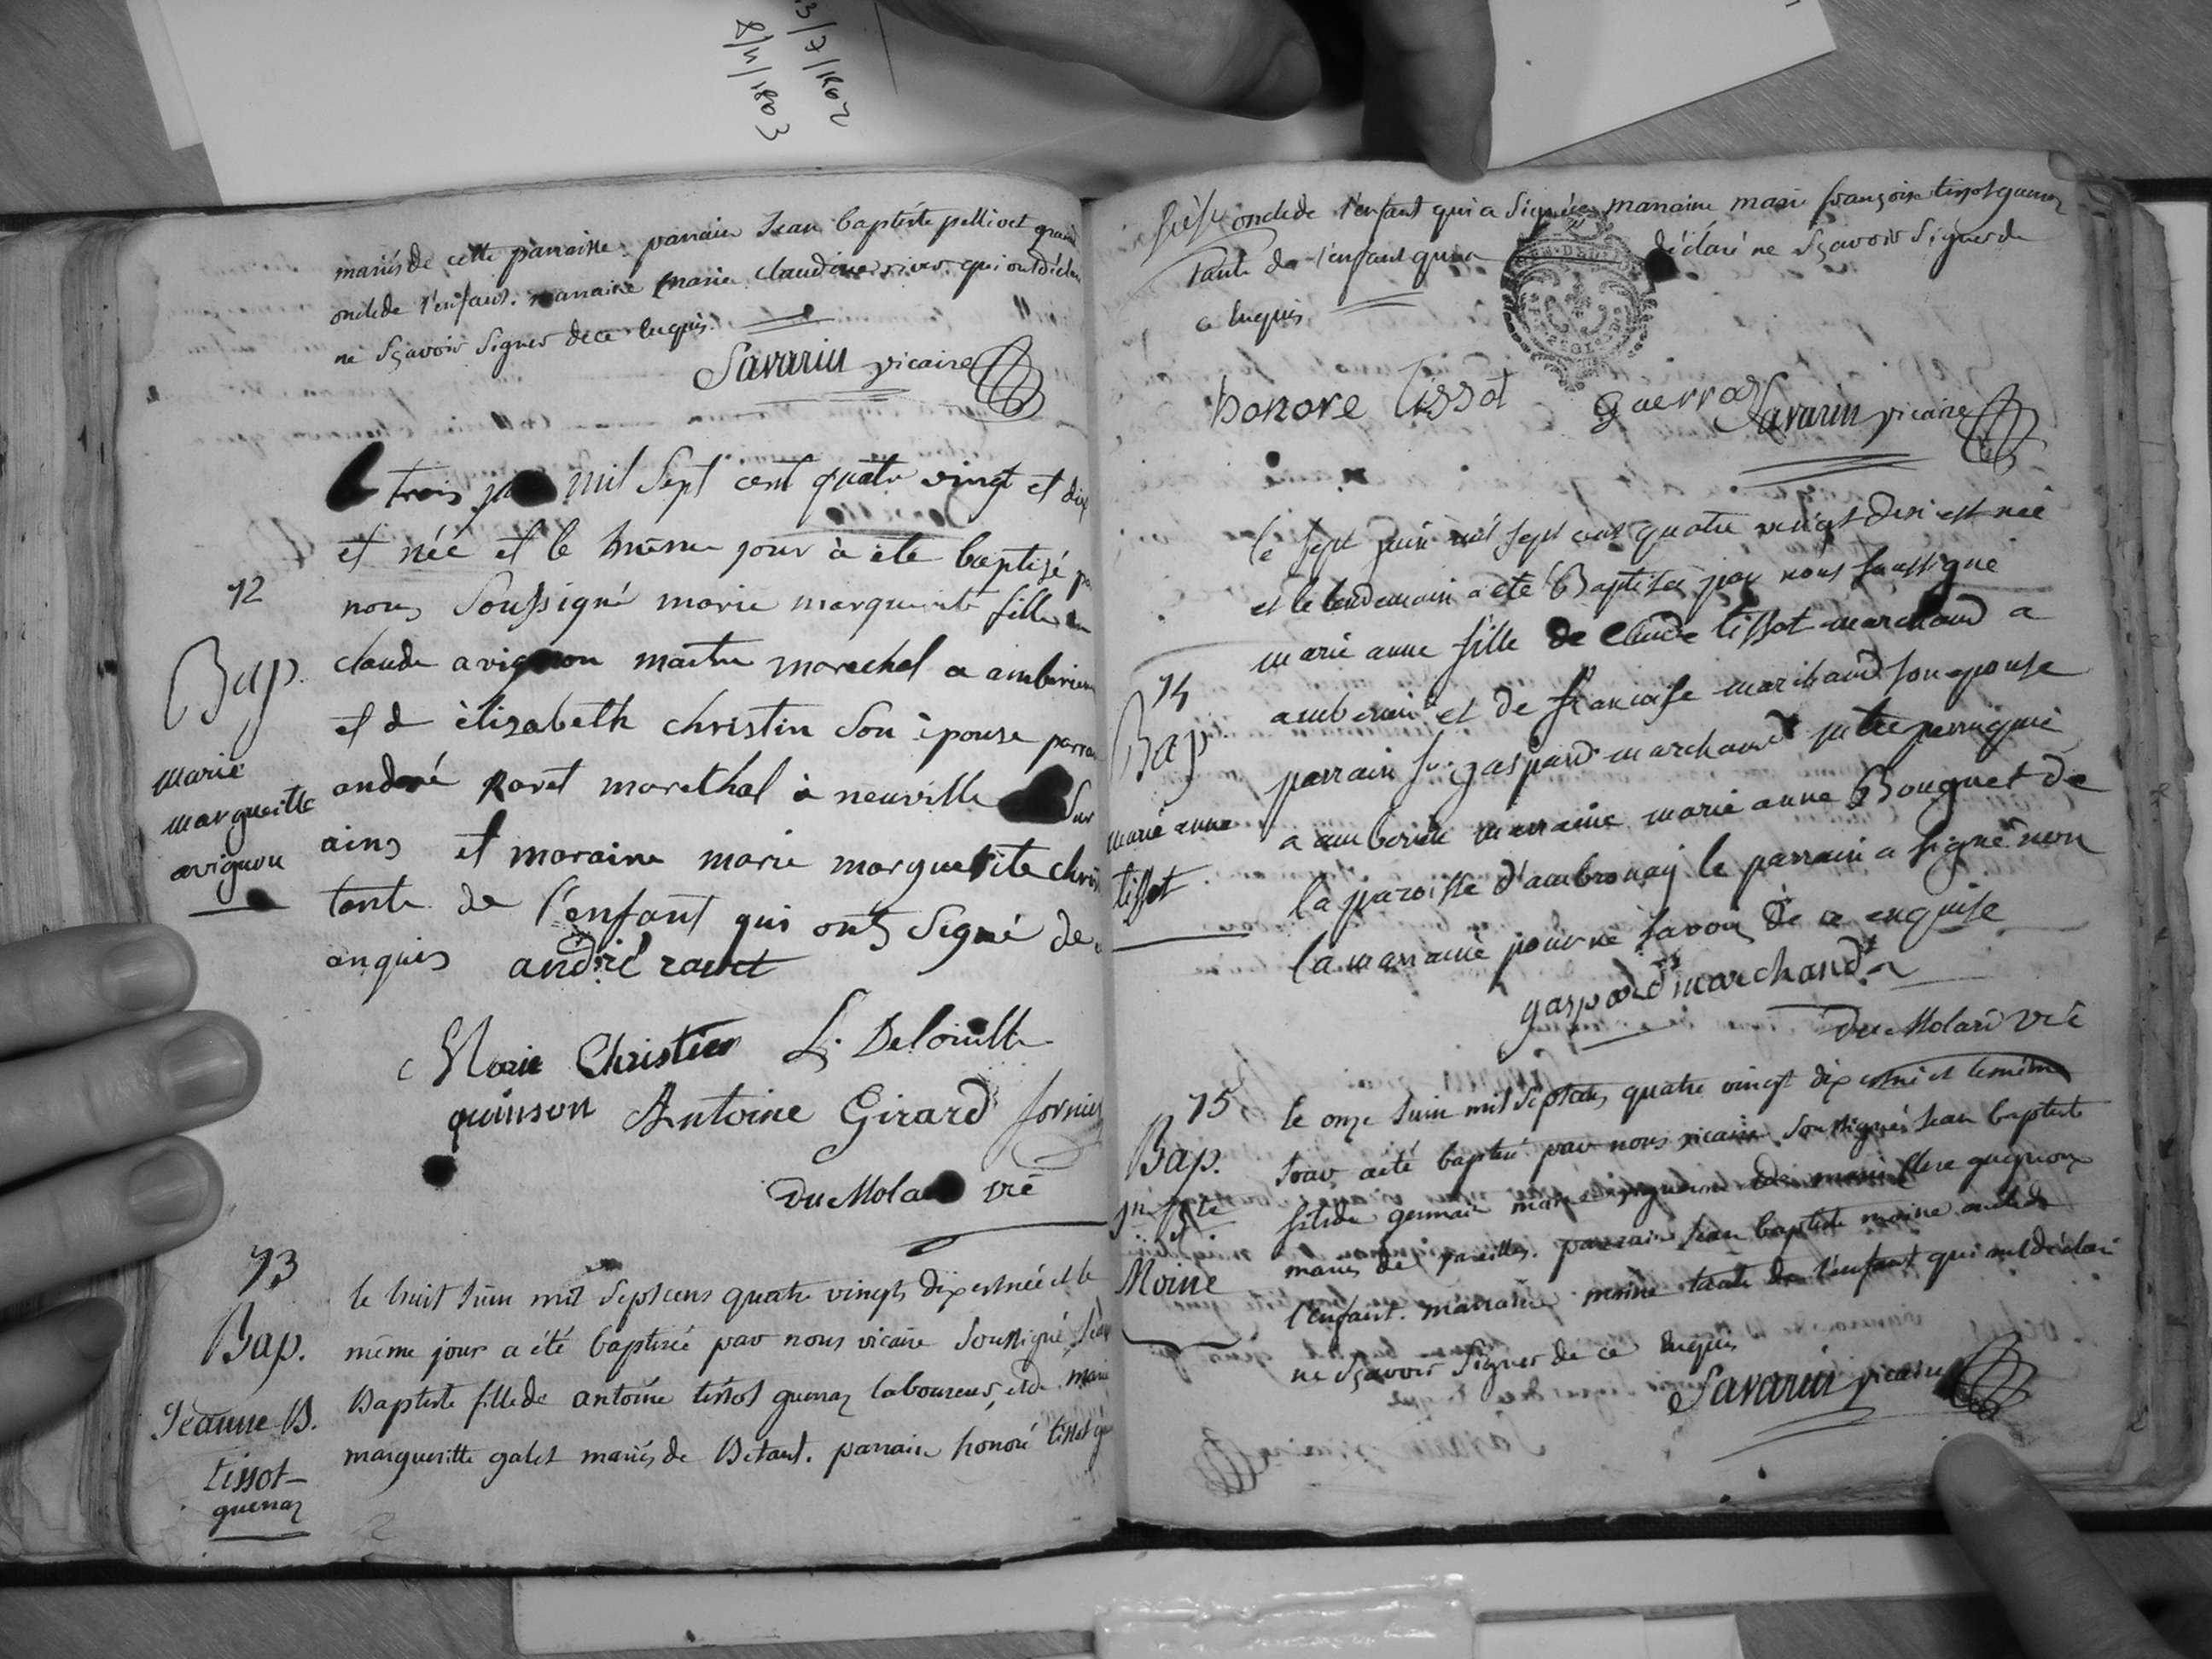 3/7/1802
8/4/1803
mariés de cette parroisse. parrain Jean baptiste pellivet grand
oncle de l'enfant. marraine marie claudine qui ont déclaré
ne sçavoir signer de ce enquis.
Savarin vicaire
le trois mil sept cent quatre vingt et dix
et née et le même jour à été baptisé par
72
nous soussigné marie marguerite fille
Bap.
claude avignon maitre marechal a amberieu
et d èlizabeth christin son èpouse parra
marie
margueitte
avignon
andré ravet marèchal à neuville sur
ains et maraine marie marguerite chris
tante de l'enfant qui ont signé de
anquis andrié ravet
Marie Christin L. Delouille
quinson Antoine Girard fornier
Du Molard vic
73
Bap.
Jeanne B.
tissot
guerraz
le huit juin mil sept cens quatre vingts dix est née et le
même jour a été baptisée par nous vicaire soussigné Jean
Baptiste fille de antoine tissot guerraz laboureur, et de marie
margueritte galet mariés de Betant. parrain honoré tissot gu
oncle de l'enfant qui a signé, marraine marie françoise tissot guerraz
tante de l'enfant qui a déclaré ne sçavoir signer de
ce enquis
honore tissot guerraz Savarin vicaire
le sept juin mil sept cent quatre vingt dix est née
et le lendemain a été Baptisée par nous soussigné
marie anne fille de Claude tissot marchand a
74
Bap
marie anne
tissot
amberieu et de francoise marchand son epouse
parrain sr. gaspard marchand mtre perruquie
a amberieu marraine marie anne Bouguet de
la paroisse d'ambronay le parrain a signé non
la marraine pour ne savoir de ce enquise
gaspard marchand
Du Molard vic
75
Bap.
jn Bte
Moine
le onze juin mil sept cens quatre vingt dix est né et le même
jour a été baptisé par nous vicaire soussigné Jean baptiste
fils de germain moine vigneron et de marie
mariés de vareilles. parrain jean baptiste moine oncle de
l'enfant. marraine moine tante de l'enfant qui ont déclaré
ne sçavoir signer de ce enquis
Savarin vicaire